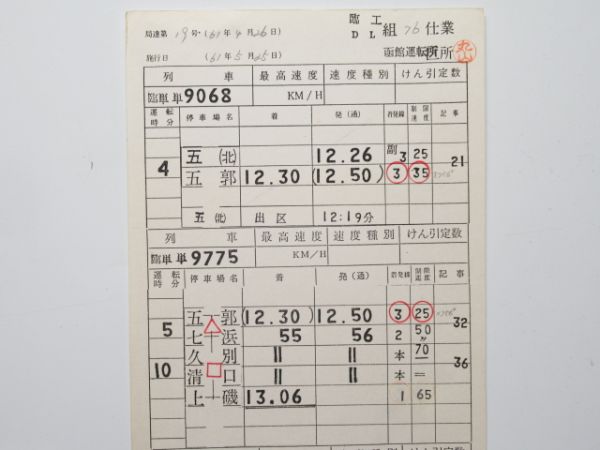 局達第19号・(61年4月26日) 臨工DL組76仕業
施行日 (61年5月25日) 函館運転所 丸山
列車 最高速度 速度種別 けん引定数
臨 車9068 KM/H
運転時分 停車場名 着 発(通) 着発線 制限速度 記事
五(北) 12.26 副3 25
4 21
五郭 12.30 (12.50) 3 35
五(北) 出区 12:19分
列車 最高速度 速度種別 けん引定数
臨 車9775 KM/H
運転時分 停車場名 着 発(通) 着発線 制限速度 記事
五郭 (12.30) 12.50 3 25
5 32
七浜 55 56 2 50
久別 〃 〃 本 70
10 36
清口 〃 〃 本 =
上磯 13.06 1 65
最高速度 速度種別 けん引定数